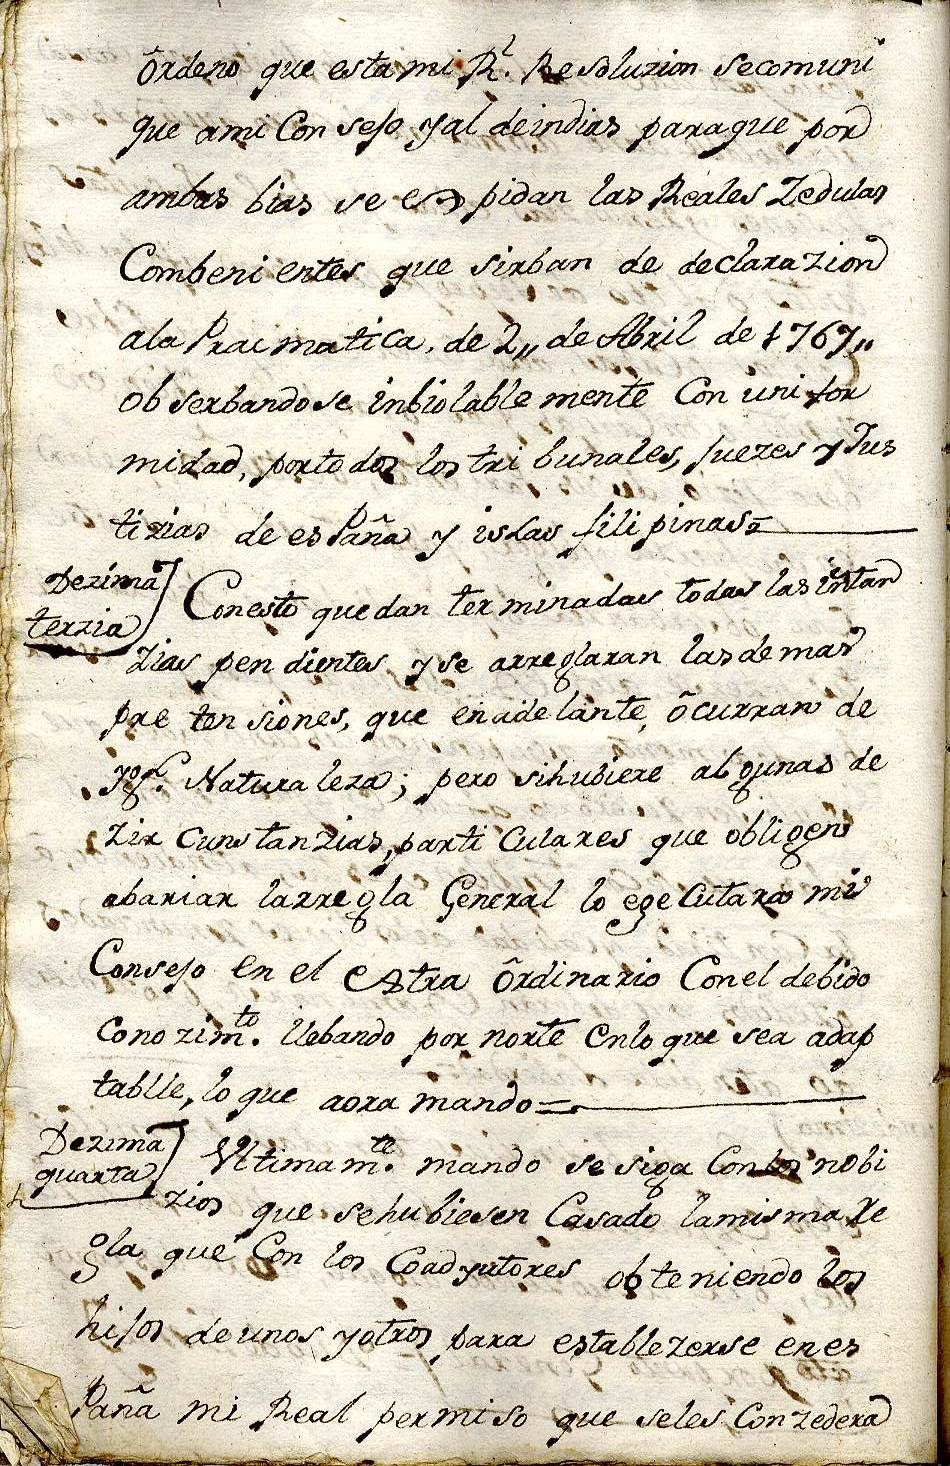 Ôrdeno que esta mi Rl. Resoluzion se comuni
que ami Consejo y al de indias paraque por
ambas bias se espidan las Reales Zedulas
Combenientes que sirban de declarazion
ala Pracmatica, de 2,, de Abril de 1767,,
observandose inbiolablemente Con unifor
midad, portodos los tribunales, Juezes y Jus
tizias de españa y islas filipinas=
Dezima
terzia
Con esto quedan terminadas todas las instan
zias pendientes y se arreglaran las demas
pretensiones, que en adelante, ôcurran de
ygl. Naturaleza; pero si hubiere algunas de
Zircunstanzias, particulares que obligen
abariar larregla General lo egecutara mi
Consejo en el Estraôrdinario Con el debido
Conozimto. llebando por norte En lo que sea adap
tablle, lo que aora mando=
Dezima
quarta
Vltimamte. mando se siga Con los nobi
zios que se hubiesen Casado la misma Re
gla que Con los Coadyutores obteniendo los
hijos de unos y otros para establezerse en es
Paña mi Real permiso que se les Conzedera